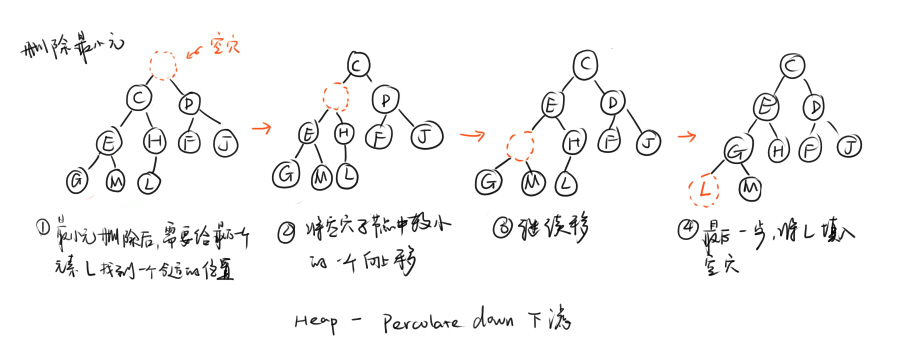 删除最小元
空穴
C D E H F J G M L
C D E H F J G M L
C E D H F J G M L
C E D G H F J L M
① 最小元删除后,需要给最后个
元素 L 找到一个合适的位置
② 将空穴子节点中较小
的一个向上移
③ 继续移
④ 最后一步,将 L 填入
空穴
Heap - Percolate down 下滤